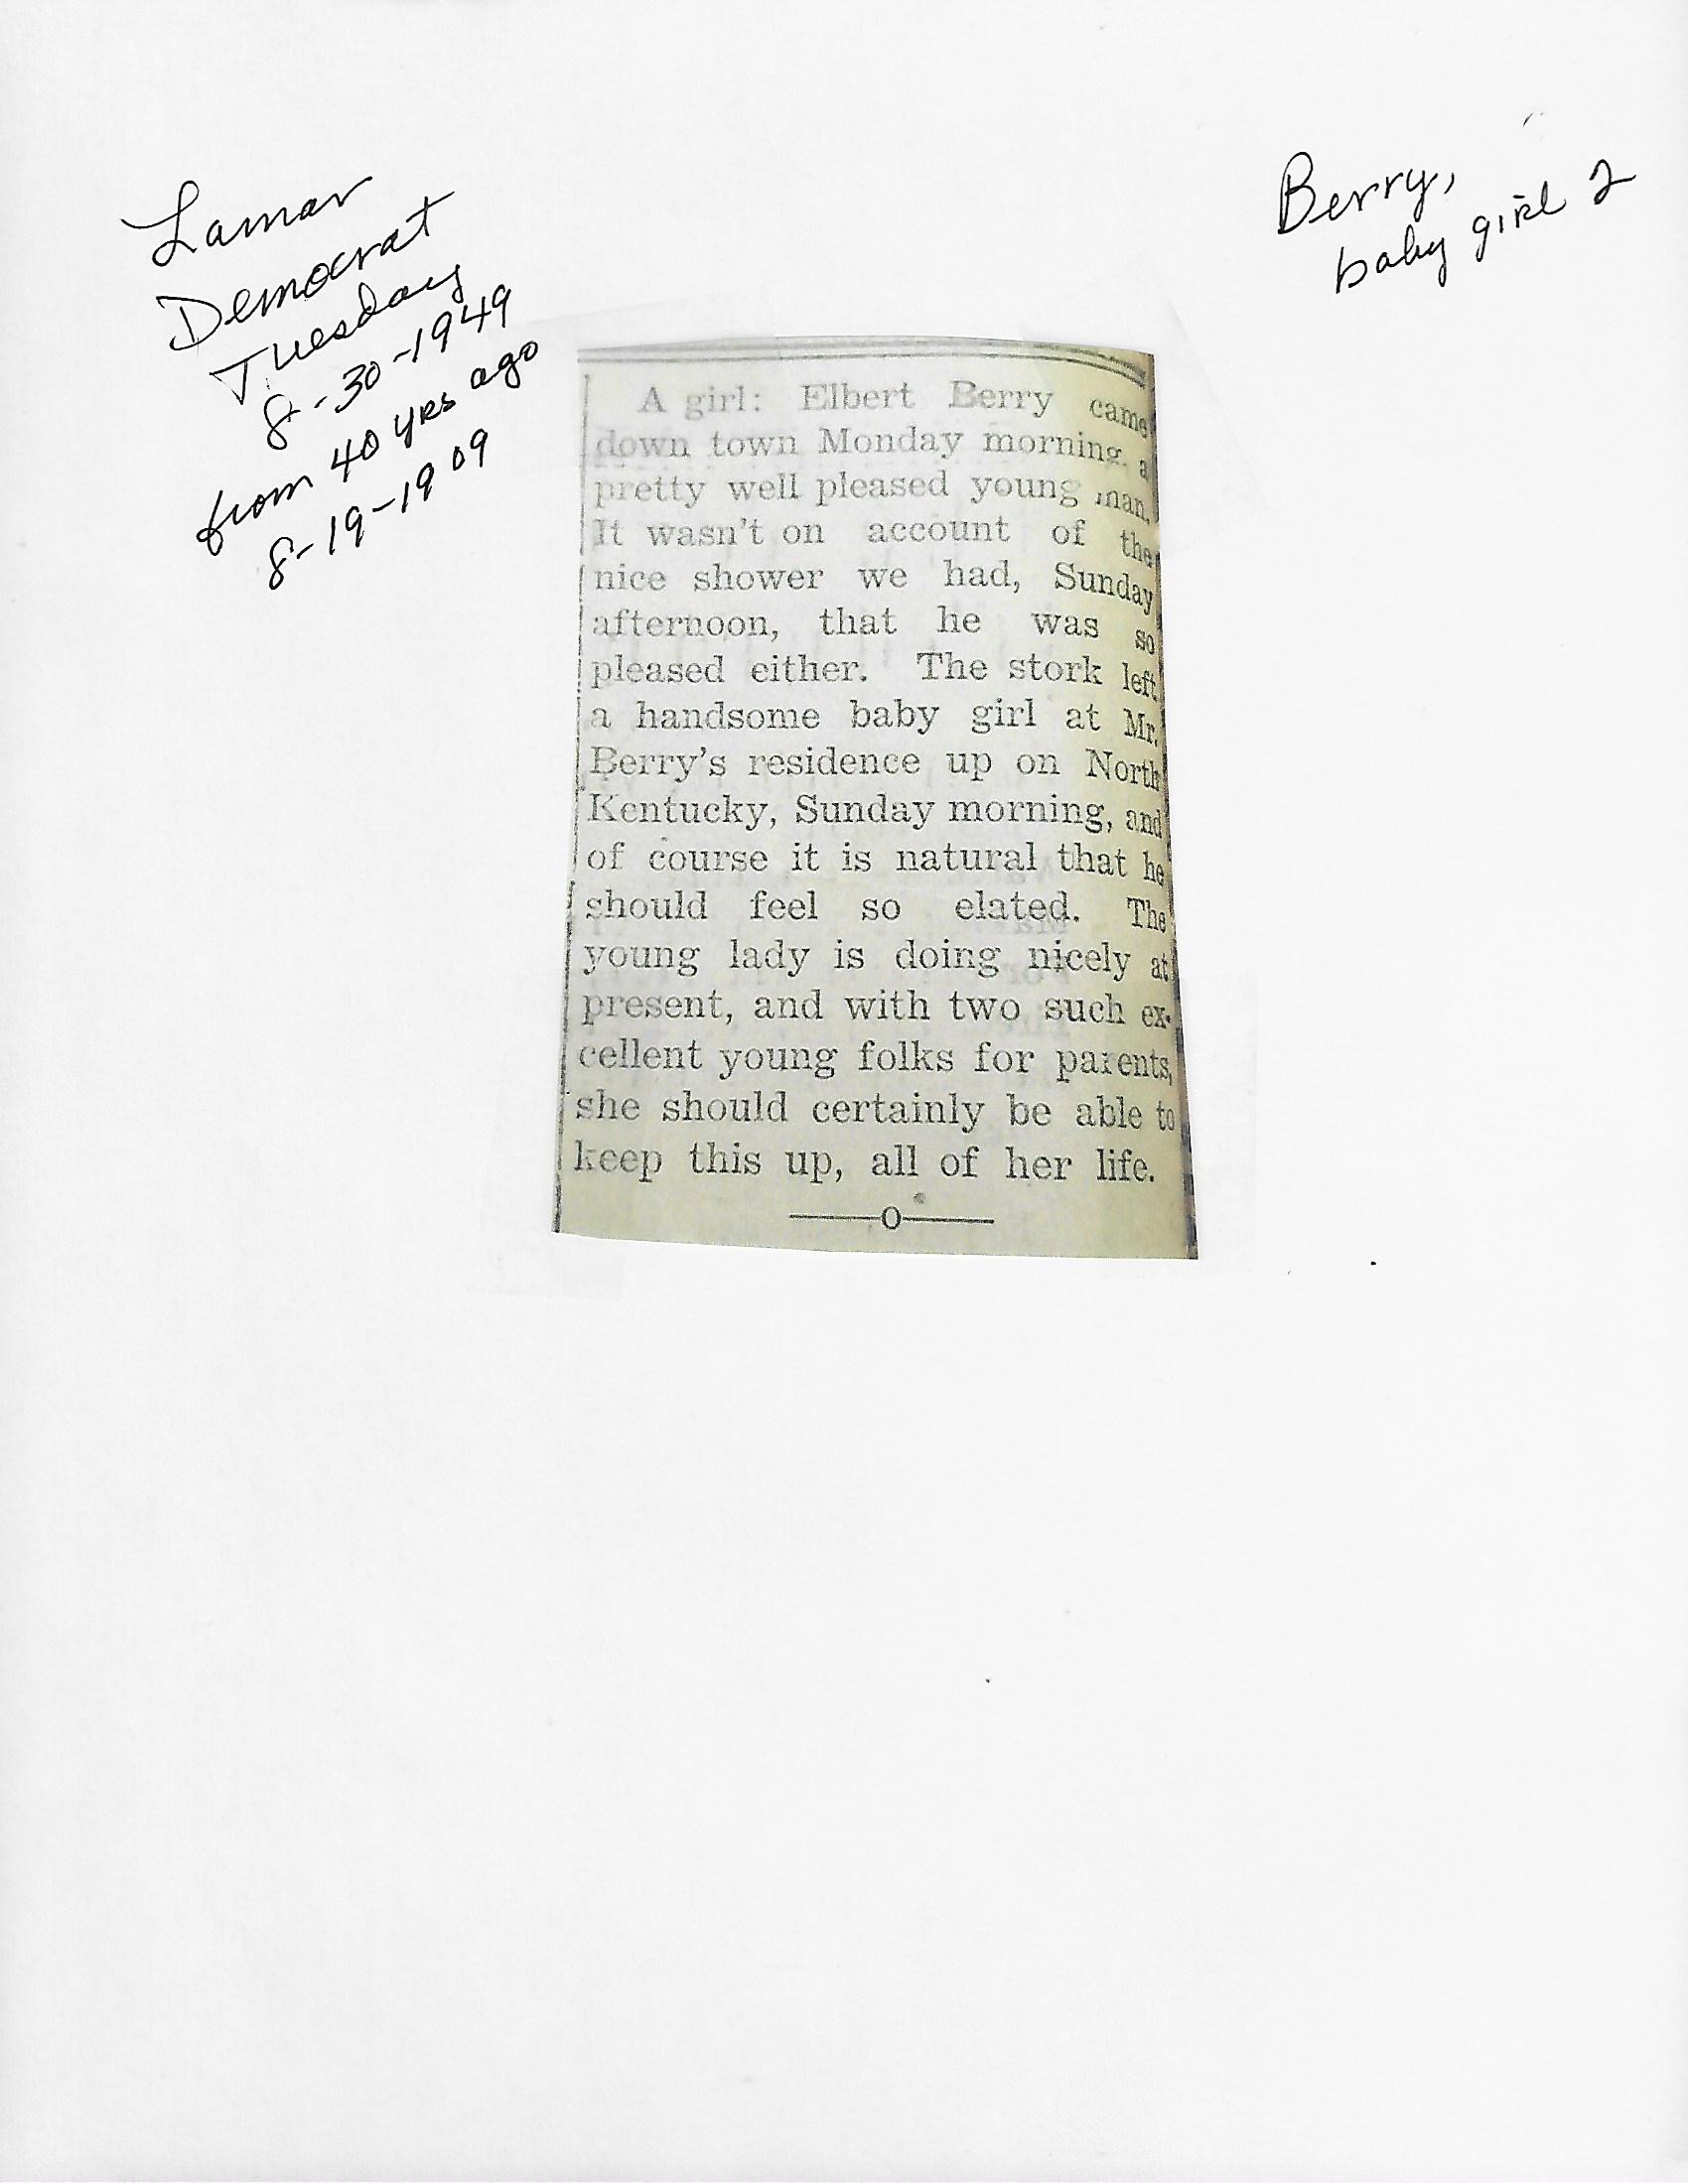 Lamar
Democrat
Tuesday
8-30-1949
from 40 yrs ago
8-19-1909
Berry,
baby girl 2
A girl: Elbert Berry came
down town Monday morning, a
pretty well pleased young man.
It wasn't on account of the
nice shower we had, Sunday
afternoon, that he was so
pleased either. The stork left
a handsome baby girl at Mr.
Berry's residence up on North
Kentucky, Sunday morning, and
of course it is natural that he
should feel so elated. The
young lady is doing nicely at
present, and with two such ex-
cellent young folks for parents,
she should certainly be able to
keep this up, all of her life.
——o——